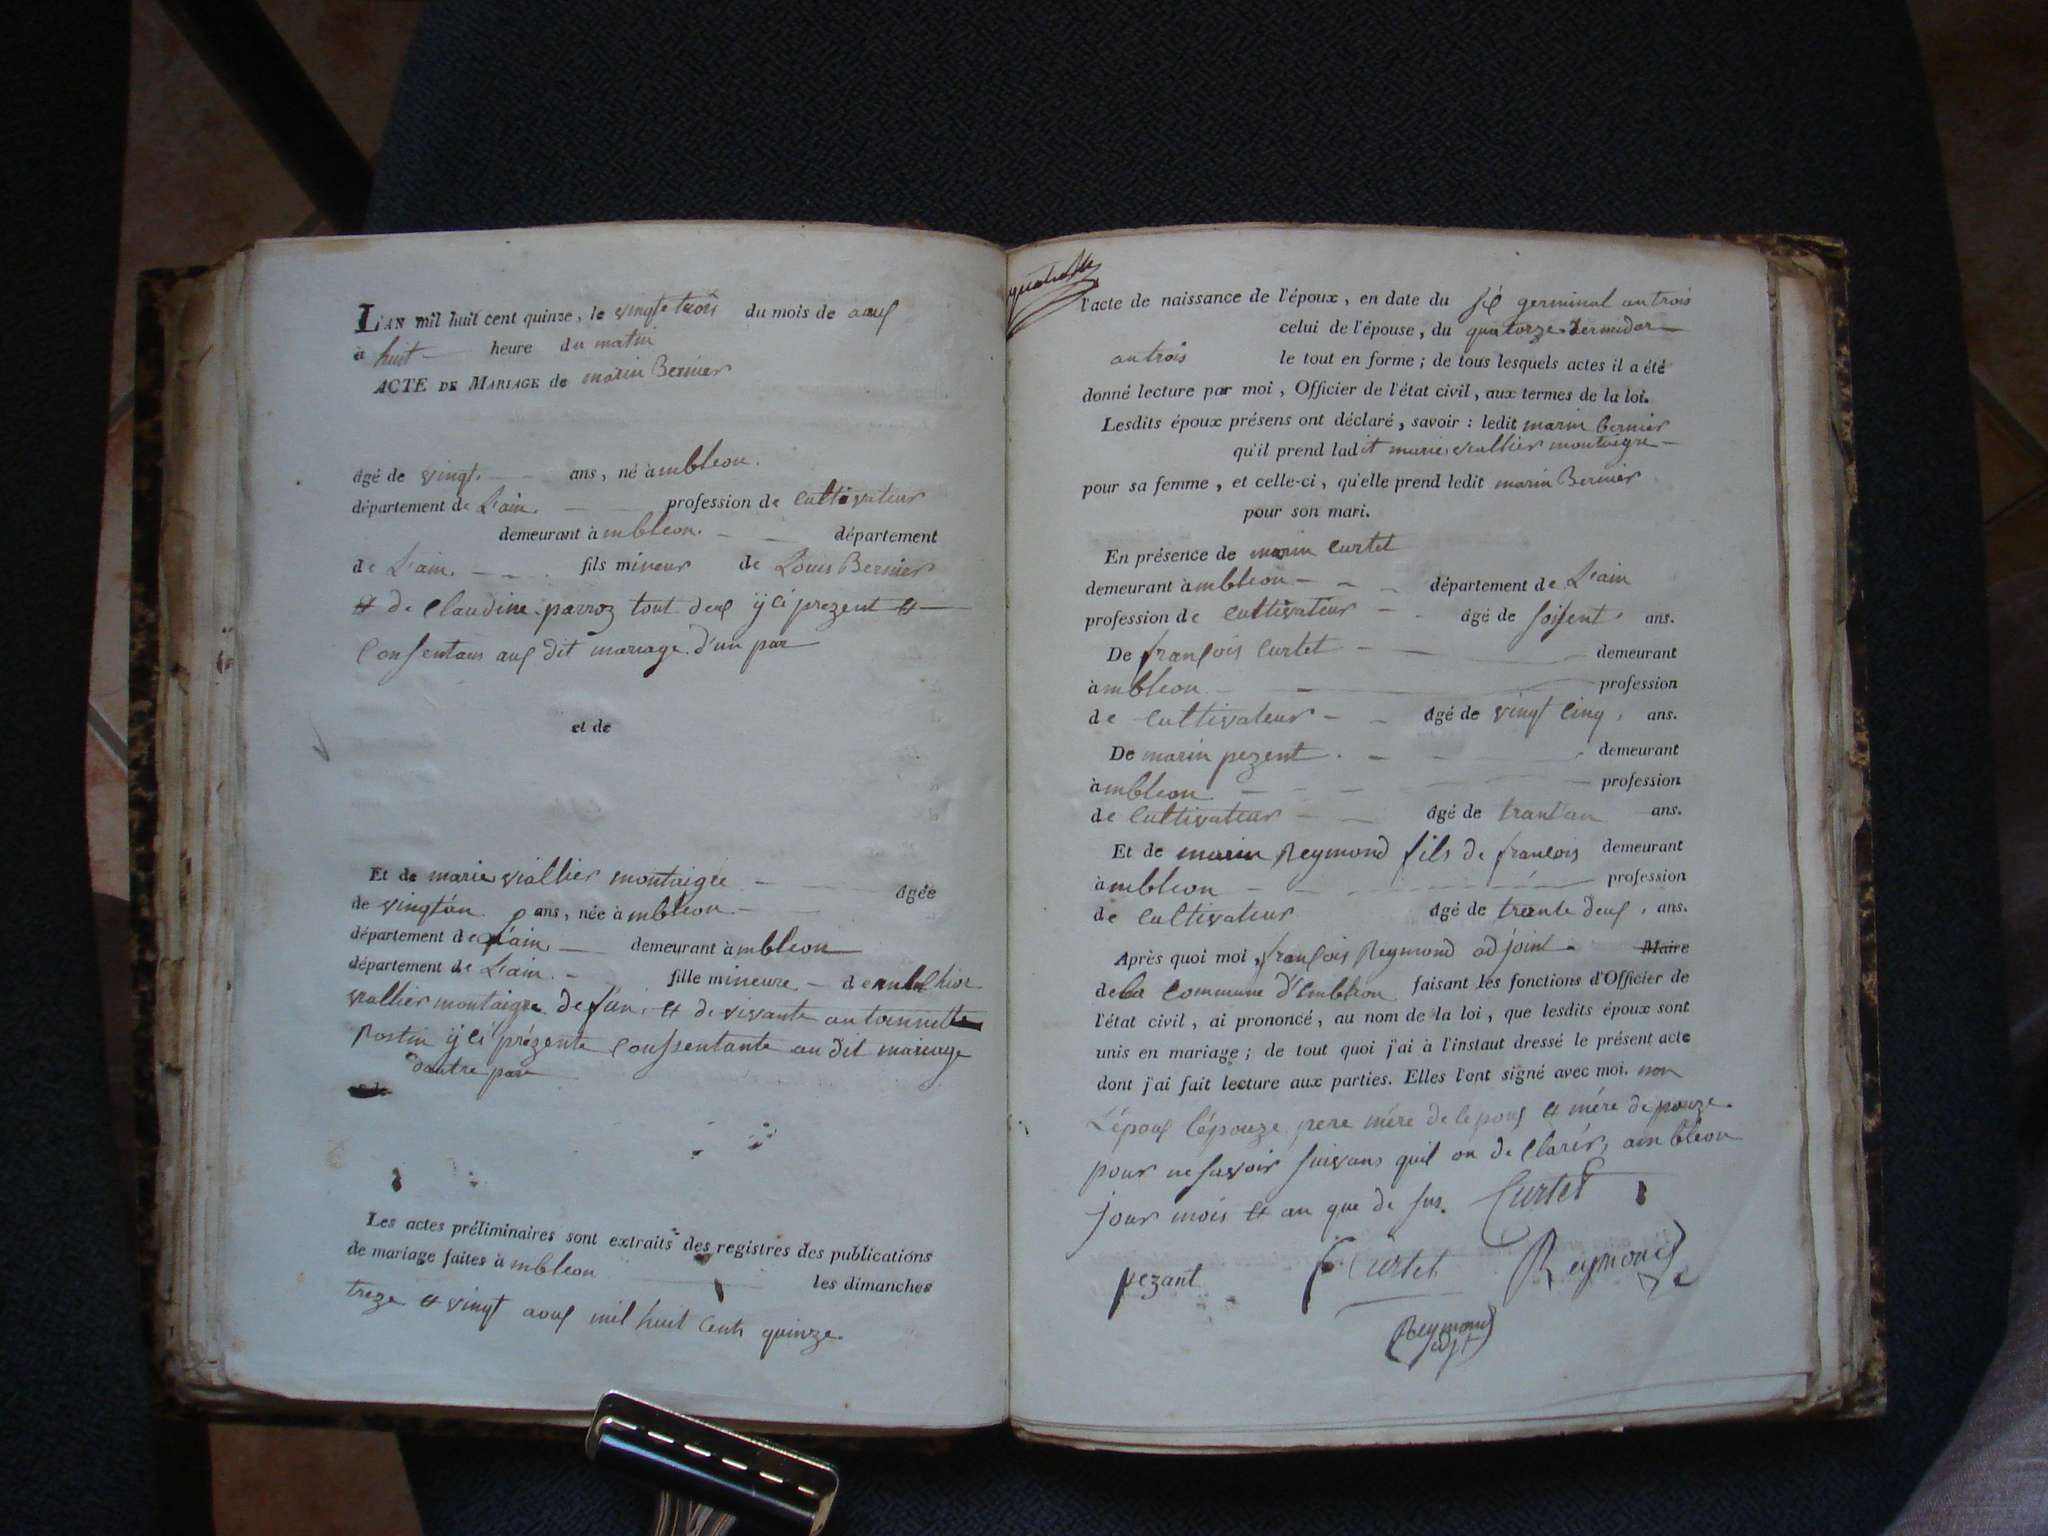 L'AN mil huit cent quinze, le vingt trois du mois de aout
à huit heure du matin
ACTE DE MARIAGE de marin Bernier
âgé de vingt ans, né à mbléon.
département de L'ain. profession de cultivateur
demeurant à mbléon. département
de L'ain. fils mineur de Louis Bernier
et de Claudine parroz tout deux y ci prezent et
Consentans aux dit mariage d'un par
et de
Et de marie viallier montaigre âgée
de vingt an ans, née à mbléon
département de L'ain demeurant à mbléon
département de L'ain. fille mineure de
viallier montaigre de fun. et de vivante antoinette
Postin y ci prézente Consentante au dit mariage
dautre par
Les actes préliminaires sont extraits des registres des publications
de mariage faites à mbléon les dimanches
treze et vingt aout mil huit cents quinze
l'acte de naissance de l'époux, en date du six germinal an trois
celui de l'épouse, du quatorze termidor
an trois le tout en forme ; de tous lesquels actes il a été
donné lecture par moi, Officier de l'état civil, aux termes de la loi.
Lesdits époux présens ont déclaré, savoir : ledit marin bernier
qu'il prend ladit marie viallier montaigre
pour sa femme, et celle-ci, qu'elle prend ledit marin Bernier
pour son mari.
En présence de marin Curtet
demeurant à mbléon département de L'ain
profession de cultivateur âgé de soisent ans.
De françois Curtet demeurant
à mbléon profession
de cultivateur âgé de vingt cinq ans.
De marin pezent demeurant
à mbléon profession
de Cultivateur âgé de trant'an ans.
Et de marin Reymond fils de francois demeurant
à mbléon profession
de cultivateur âgé de trante deux, ans.
Après quoi moi, françois Reymond adjoint Maire
de la commune d'ambléon faisant les fonctions d'Officier de
l'état civil, ai prononcé, au nom de la loi, que lesdits époux sont
unis en mariage ; de tout quoi j'ai à l'instaut dressé le présent acte
dont j'ai fait lecture aux parties. Elles l'ont signé avec moi. non
L'époux l'épouze pere mére de lepoux et mére de pouze
pour ne savoir suivans quil on de Clarér, ambléon
jour mois et an que de sus. Curtet
pezant f Curtet Reymond
Reymond adjt